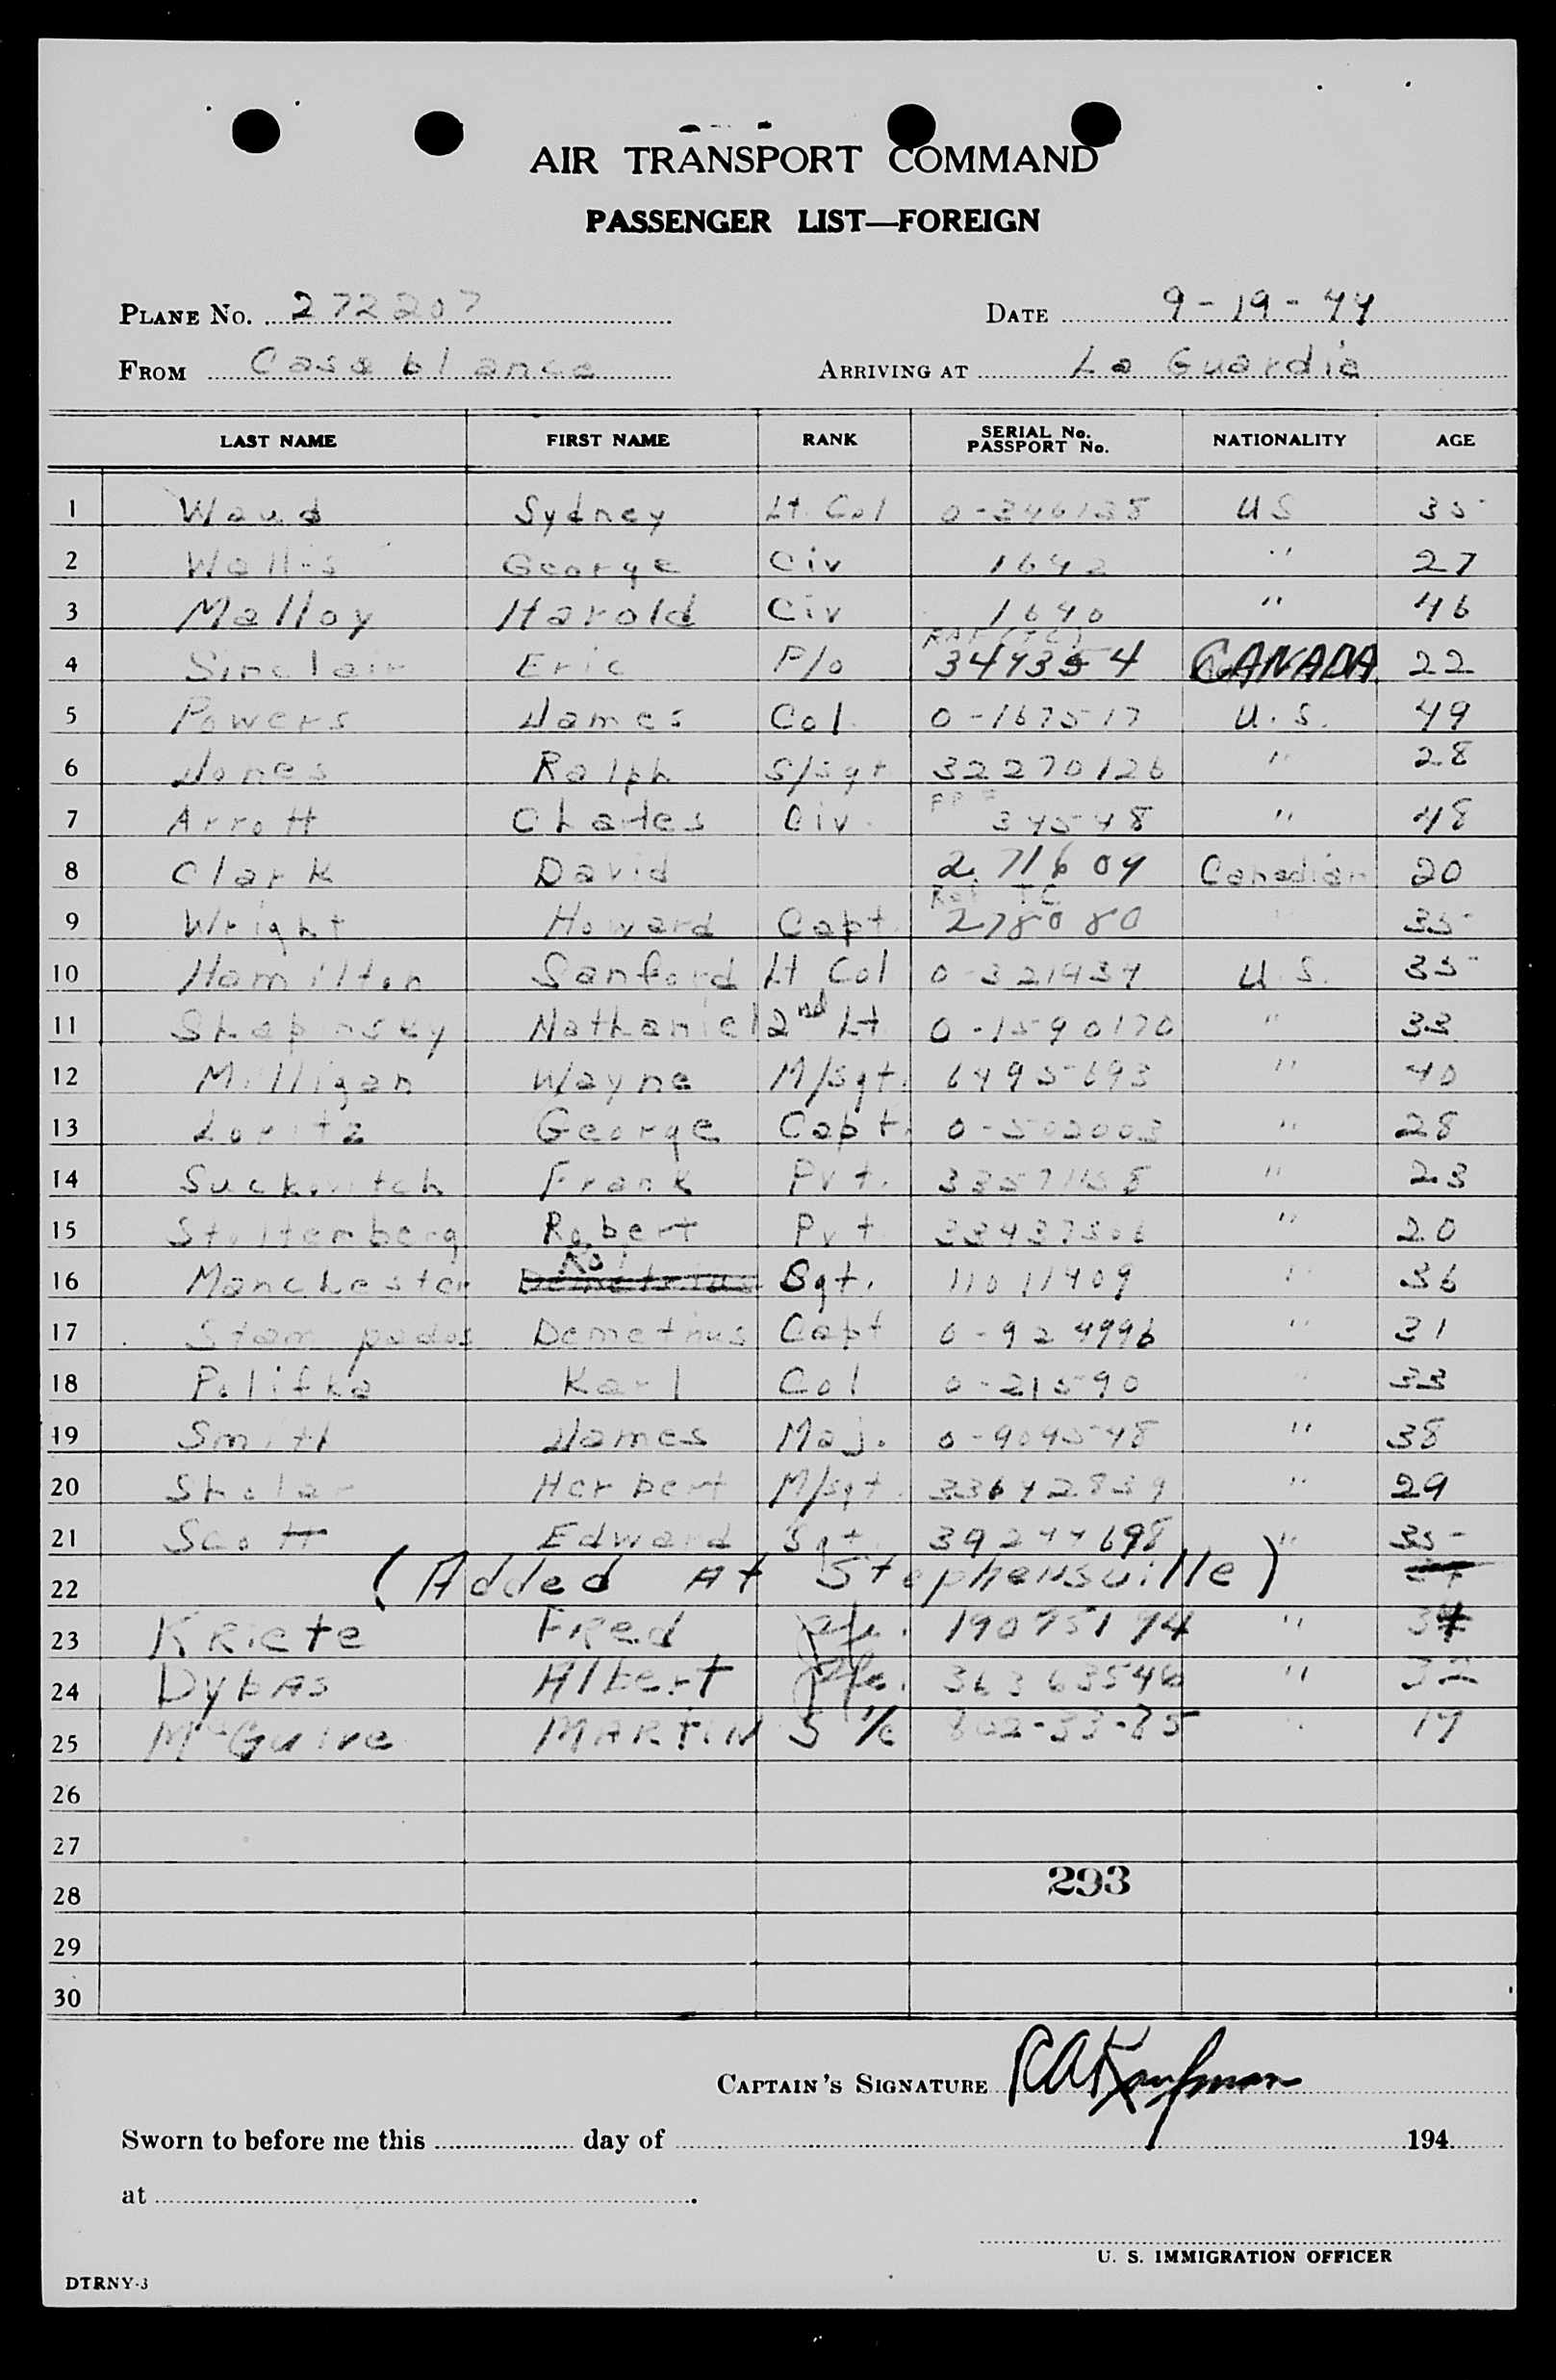 AIR TRANSPORT COMMAND
PASSENGER LIST—FOREIGN
PLANE No. 272207 DATE 9-19-44
FROM Casablanca ARRIVING AT La Guardia
LAST NAME FIRST NAME RANK SERIAL No. PASSPORT No. NATIONALITY AGE
1 Waud Sydney Lt. Col 0-346128 US 35
2 Wallis George Civ 1642 " 27
3 Malloy Harold Civ 1640 " 46
4 Sinclair Eric P/o 349354 CANADA 22
5 Powers James Col. 0-167517 U.S. 49
6 Jones Ralph S/Sgt 32270126 " 28
7 Arrott Charles Civ. 34548 " 48
8 Clark David 271604 Canadian 20
9 Wright Howard Capt. 278080 " 35
10 Hamilton Sanford Lt Col 0-321434 U.S. 35
11 Shapinsky Nathaniel 2nd Lt 0-1590170 " 33
12 Milligan Wayne M/Sgt. 6495693 " 40
13 Loritz George Capt. 0-502003 " 28
14 Suckovitch Frank Pvt. 33571158 " 23
15 Stoltemberg Robert Pvt 33437506 " 20
16 Manchester Sgt. 11011409 " 36
17 Stampados Demetrius Capt 0-924996 " 31
18 Polifka Karl Col 0-21590 " 33
19 Smith James Maj. 0-904548 " 38
20 Sholar Herbert M/Sgt. 33642839 " 29
21 Scott Edward Sgt. 39244698 " 35
22 (Added At Stephensville)
23 Kriete Fred pfc. 19075194 " 34
24 Dybas Albert pfc. 36363546 " 32
25 McGuire MARTIN S 1/c 802-53-85 " 19
26
27
28 293
29
30
CAPTAIN'S SIGNATURE RA Kaufman
Sworn to before me this day of 194
at .
U. S. IMMIGRATION OFFICER
DTRNY-3